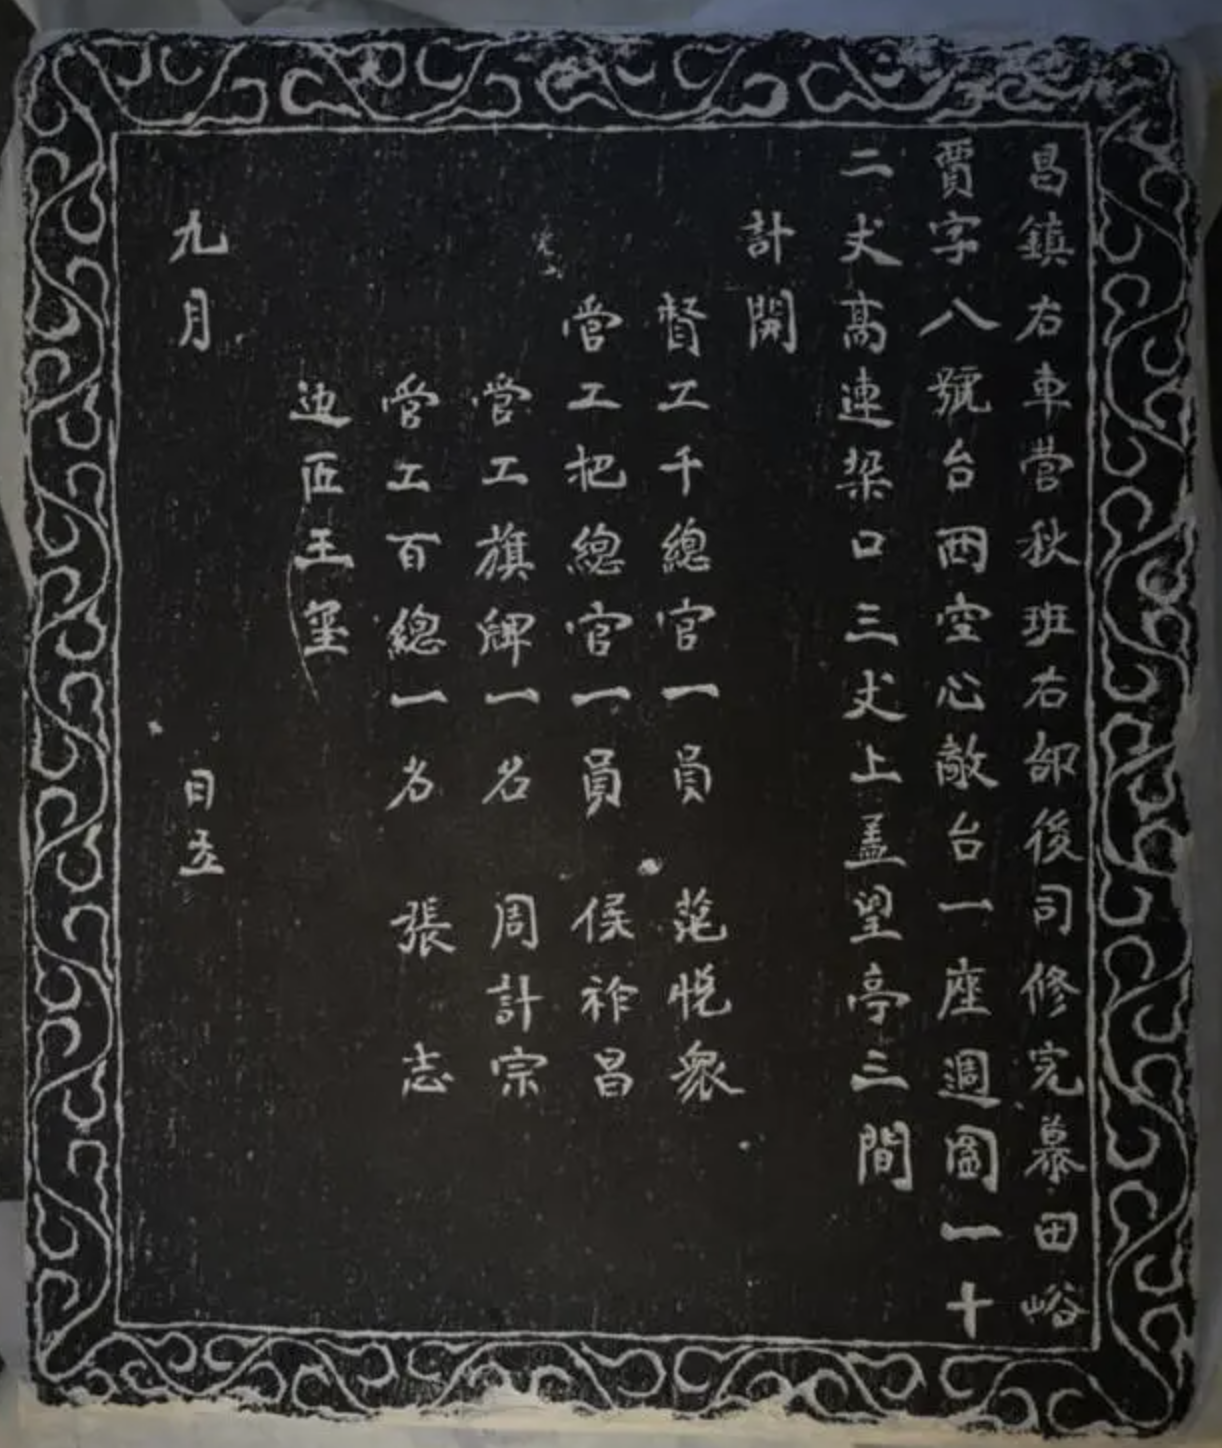 昌鎮右車營秋班右部後司修完慕田峪
賈字八號台西空心敵台一座週圍一十
二丈高連垛口三丈上盖望亭三間
計開
督工千總官一員 范悦衆
管工把總官一員 侯祚昌
管工旗牌一名 周計宗
管工百總一名 張志
边匠王璽
九月 日立